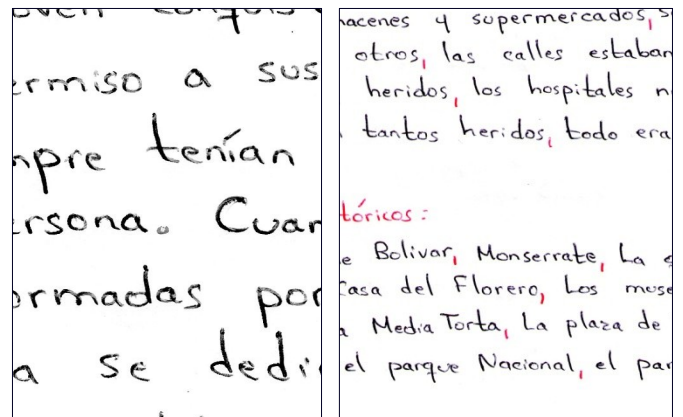 ermiso a sus
mpre tenían
ersona. Cuan
ormadas por
a se dedi
acenes y supermercados, s
otros, las calles estaban
heridos, los hospitales n
tantos heridos, todo era
tóricos:
e Bolivar, Monserrate, La
Casa del Florero, Los muse
a Media Torta, La plaza de
el parque Nacional, el par